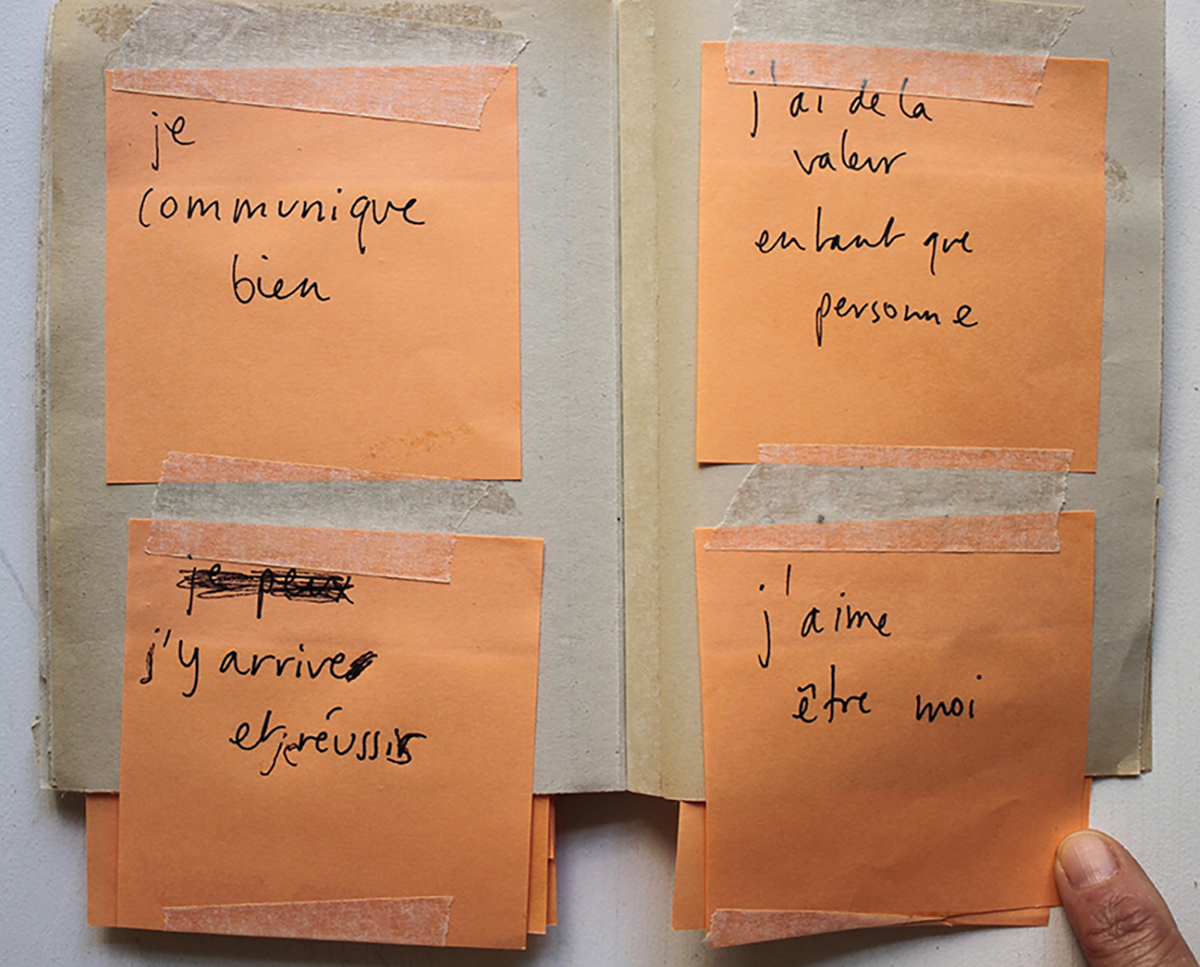 je
communique
bien
j'ai de la
valeur
en tant que
personne
je peux
j'y arrive
et je réussis
j'aime
être moi